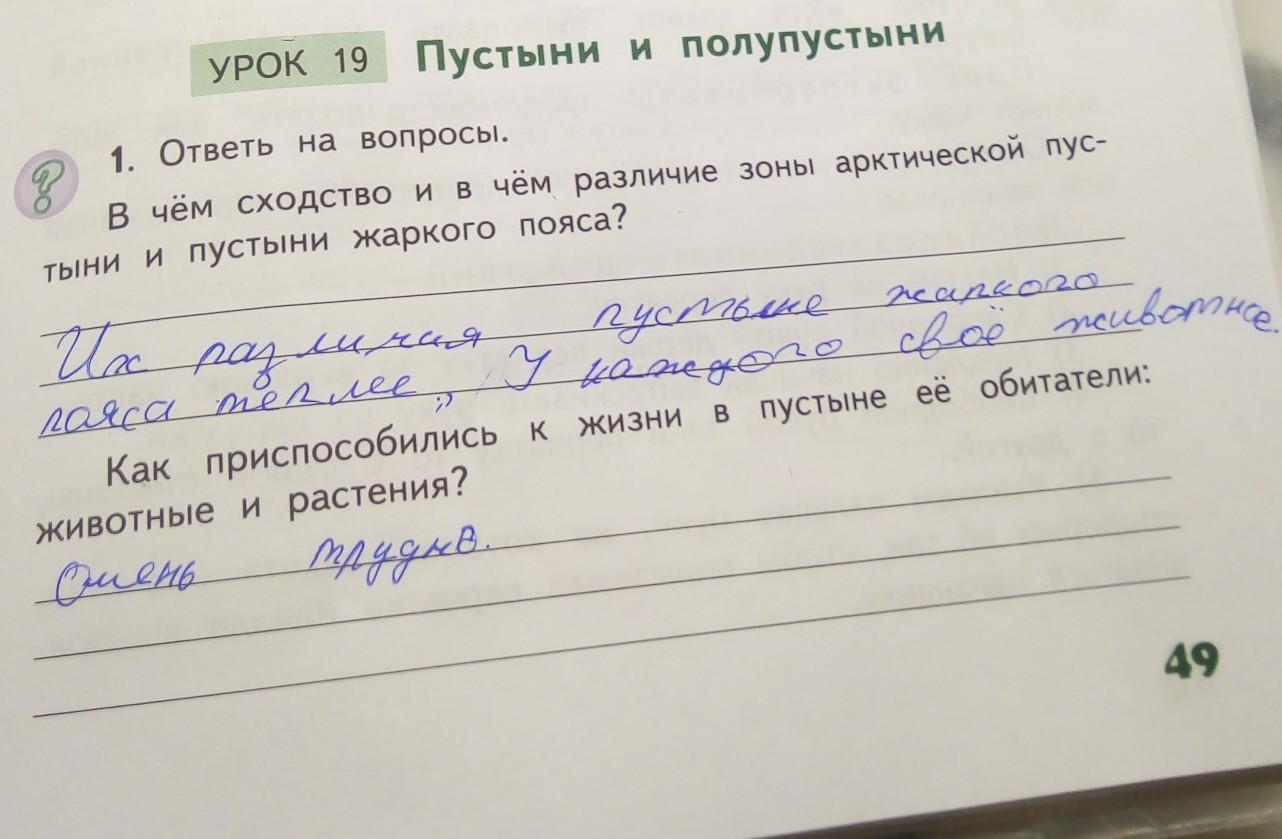 УРОК 19 Пустыни и полупустыни
1. Ответь на вопросы.
В чём сходство и в чём различие зоны арктической пус-
тыни и пустыни жаркого пояса?
Их различая пустыне жаркого
пояса теплее,, У каждого своё животное.
Как приспособились к жизни в пустыне её обитатели:
животные и растения?
Очень трудно.
49